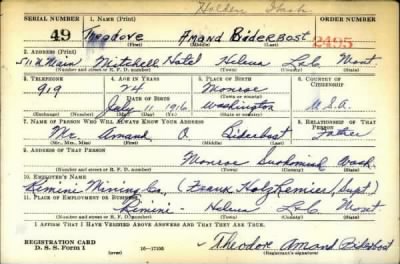 Holden Wash
SERIAL NUMBER 1. NAME (Print) ORDER NUMBER
49 Theodore Amand Biderbost 2495
(First) (Middle) (Last)
2. ADDRESS (Print)
511 N Main Mitchell Hotel Helena L&C Mont
(Number and street or R. F. D. number) (Town) (County) (State)
3. TELEPHONE 4. AGE IN YEARS 5. PLACE OF BIRTH 6. COUNTRY OF CITIZENSHIP
919 24 Monroe
DATE OF BIRTH (Town or county)
July 11 1916 Washington U.S.A.
(Mo.) (Day) (Yr.) (State or country)
7. NAME OF PERSON WHO WILL ALWAYS KNOW YOUR ADDRESS 8. RELATIONSHIP OF THAT PERSON
Mr. Amand O Biderbost Father
(Mr., Mrs., Miss) (First) (Middle) (Last)
9. ADDRESS OF THAT PERSON
Monroe Snohomish Wash.
(Number and street or R. F. D. number) (Town) (County) (State)
10. EMPLOYER'S NAME
Rimini Mining Co., (Frank Holzheimer, Supt.)
11. PLACE OF EMPLOYMENT OR BUSINESS
Rimini - Helena L&C Mont
(Number and street or R. F. D. number) (Town) (County) (State)
I AFFIRM THAT I HAVE VERIFIED ABOVE ANSWERS AND THAT THEY ARE TRUE.
REGISTRATION CARD
D. S. S. Form 1 (over) 16—17105 Theodore Amand Biderbost
(Registrant's signature)